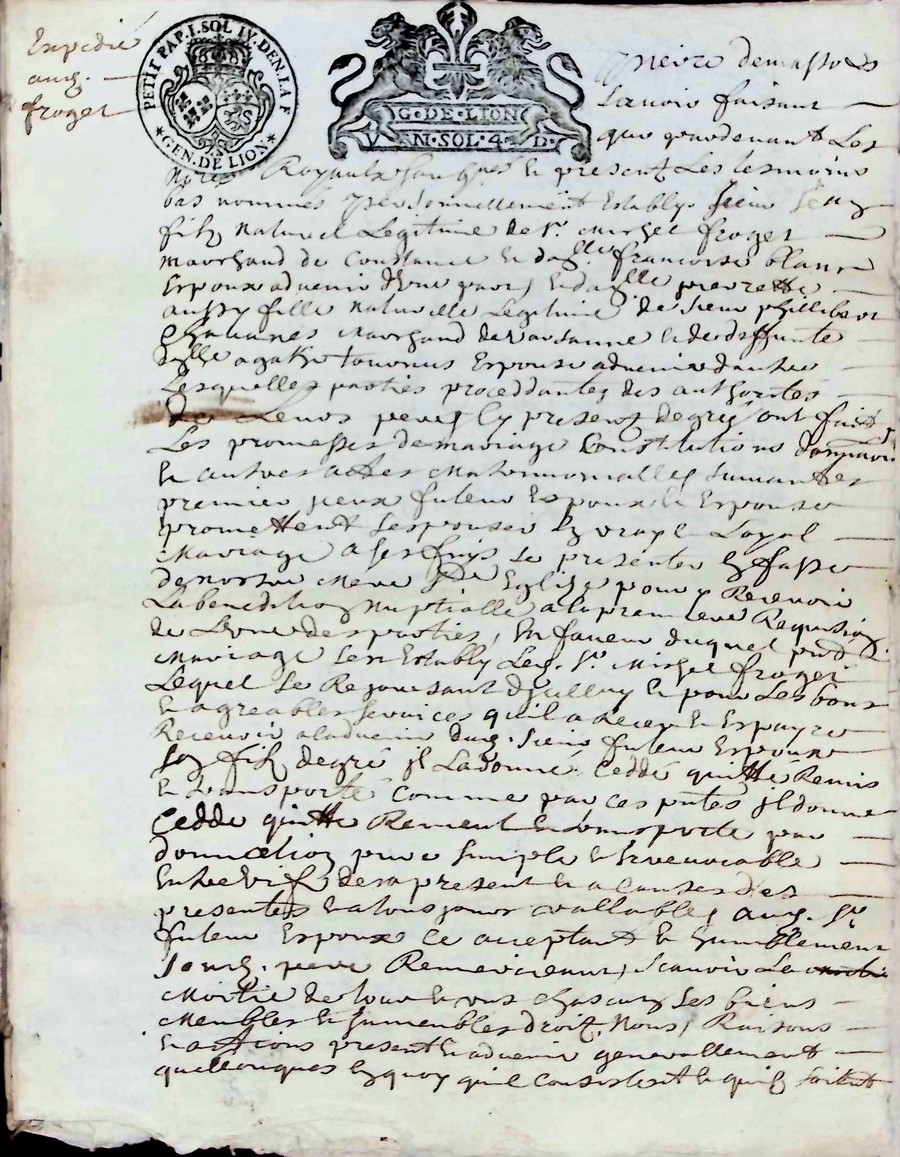 Expedié
aud.
froget
PETIT PAP. I. SOL IV. DEN. LA F
GEN. DE LION
G·DE·LION
V AN·SOL·4·D·
Scavoir faisant
que pardevant Les
No.res Royaulx soub.nes et present Les tesmoins
bas nommés personnellement Establys sieur
filz naturel Legitime de sr. Michel froget
Marchand de et da.lle francoise blanc
Espoux advenir d'une part, Et da.lle pierrette
aussy fille naturelle Legitime de sieur phillibert
Marchand de et de deffunte
d.lle agathe tournus Espouse advenir d'autre
Lesquelles parties procedantes des authorites
de Leurs peres Cy present de gré ont fait
Les promesses de mariage Constitutions
Et autres actes Matrimonialles suivantes
premier yceux futeur Espoux et Espouse
promettent s'espouser En vray et Loyal
Mariage a ses fins se presenter En fasse
de nostre Mere Ste Eglise pour y Recevoir
La benediction Nuptialle a la premiere Requisition
de L'une des parties, En faveur duquel pnt
Mariage s'est Establyt Led. sr. Michel froget
Lequel se Rejouissant d'icelluy et pour Les bons
Et agreables services qu'il a Receu et Espayre
Recevoir a l'advenir dud. sieur futeur Espoux
son filz de gré jl La donné Ceddé quitté Remis
Et transporté comme par ces pntes jl donne
Cedde quitte Remet Et transporte par
donnation pure simple et Irrevocable
Entre vifz des a present et a Causes des
presentes Et a tousjours vallables aud. sr.
futeur Espoux Ce acceptant et humblement
sond. pere Remerciant, scavoir La
Moitié de tous et uns chascuns ses biens
Meubles et Immeubles droitz Noms, Raisons
Et actions present et advenir generallement
quelconques En quoy qu'il Consistent et qu'ilz soient